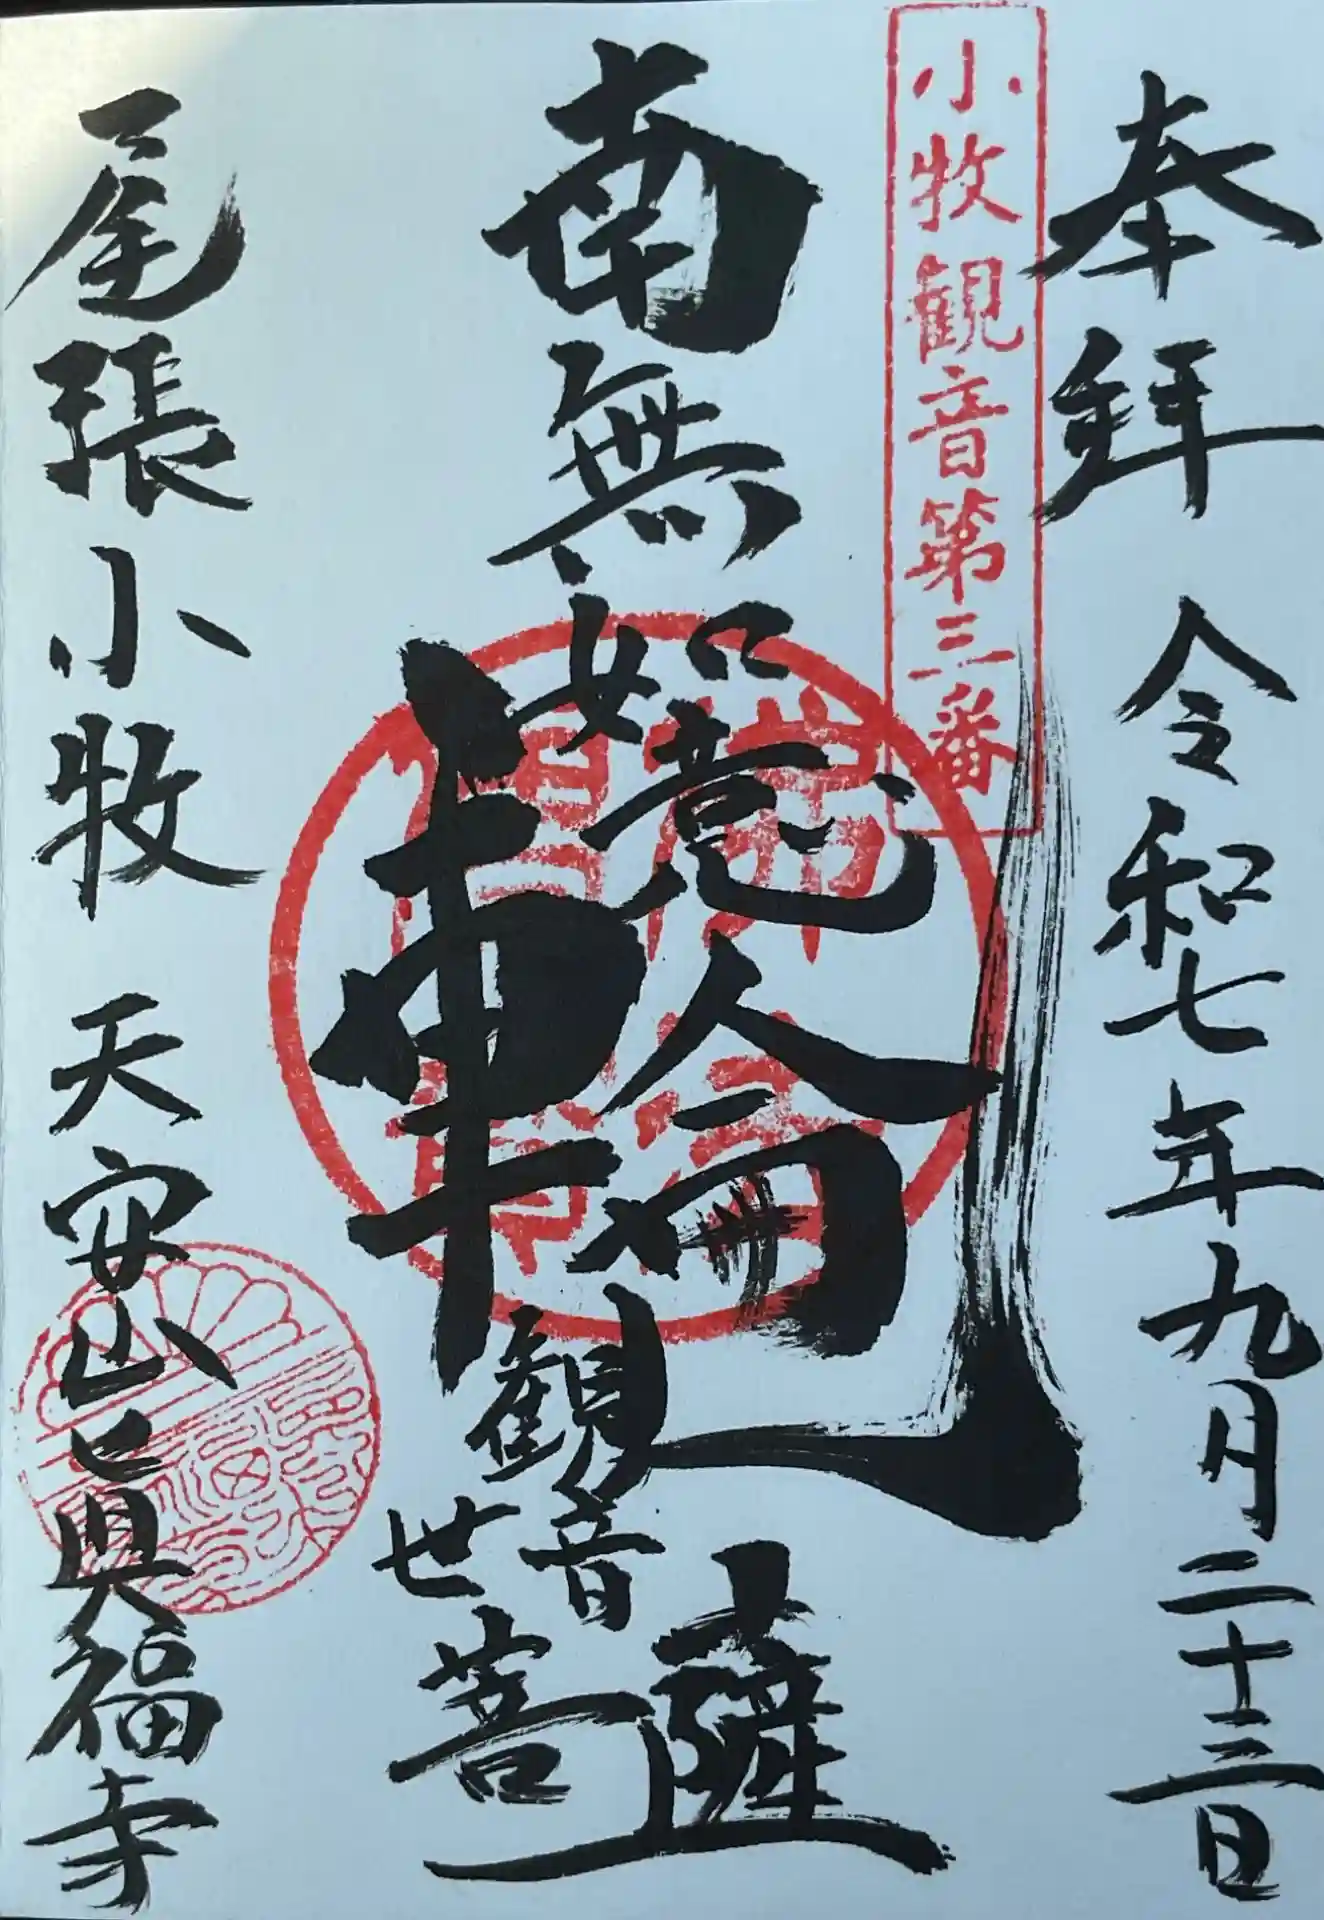 奉拜 令和七年九月二十三日
小牧観音第三番
南無如意輪観世音菩薩
尾張小牧 天安山眞福寺